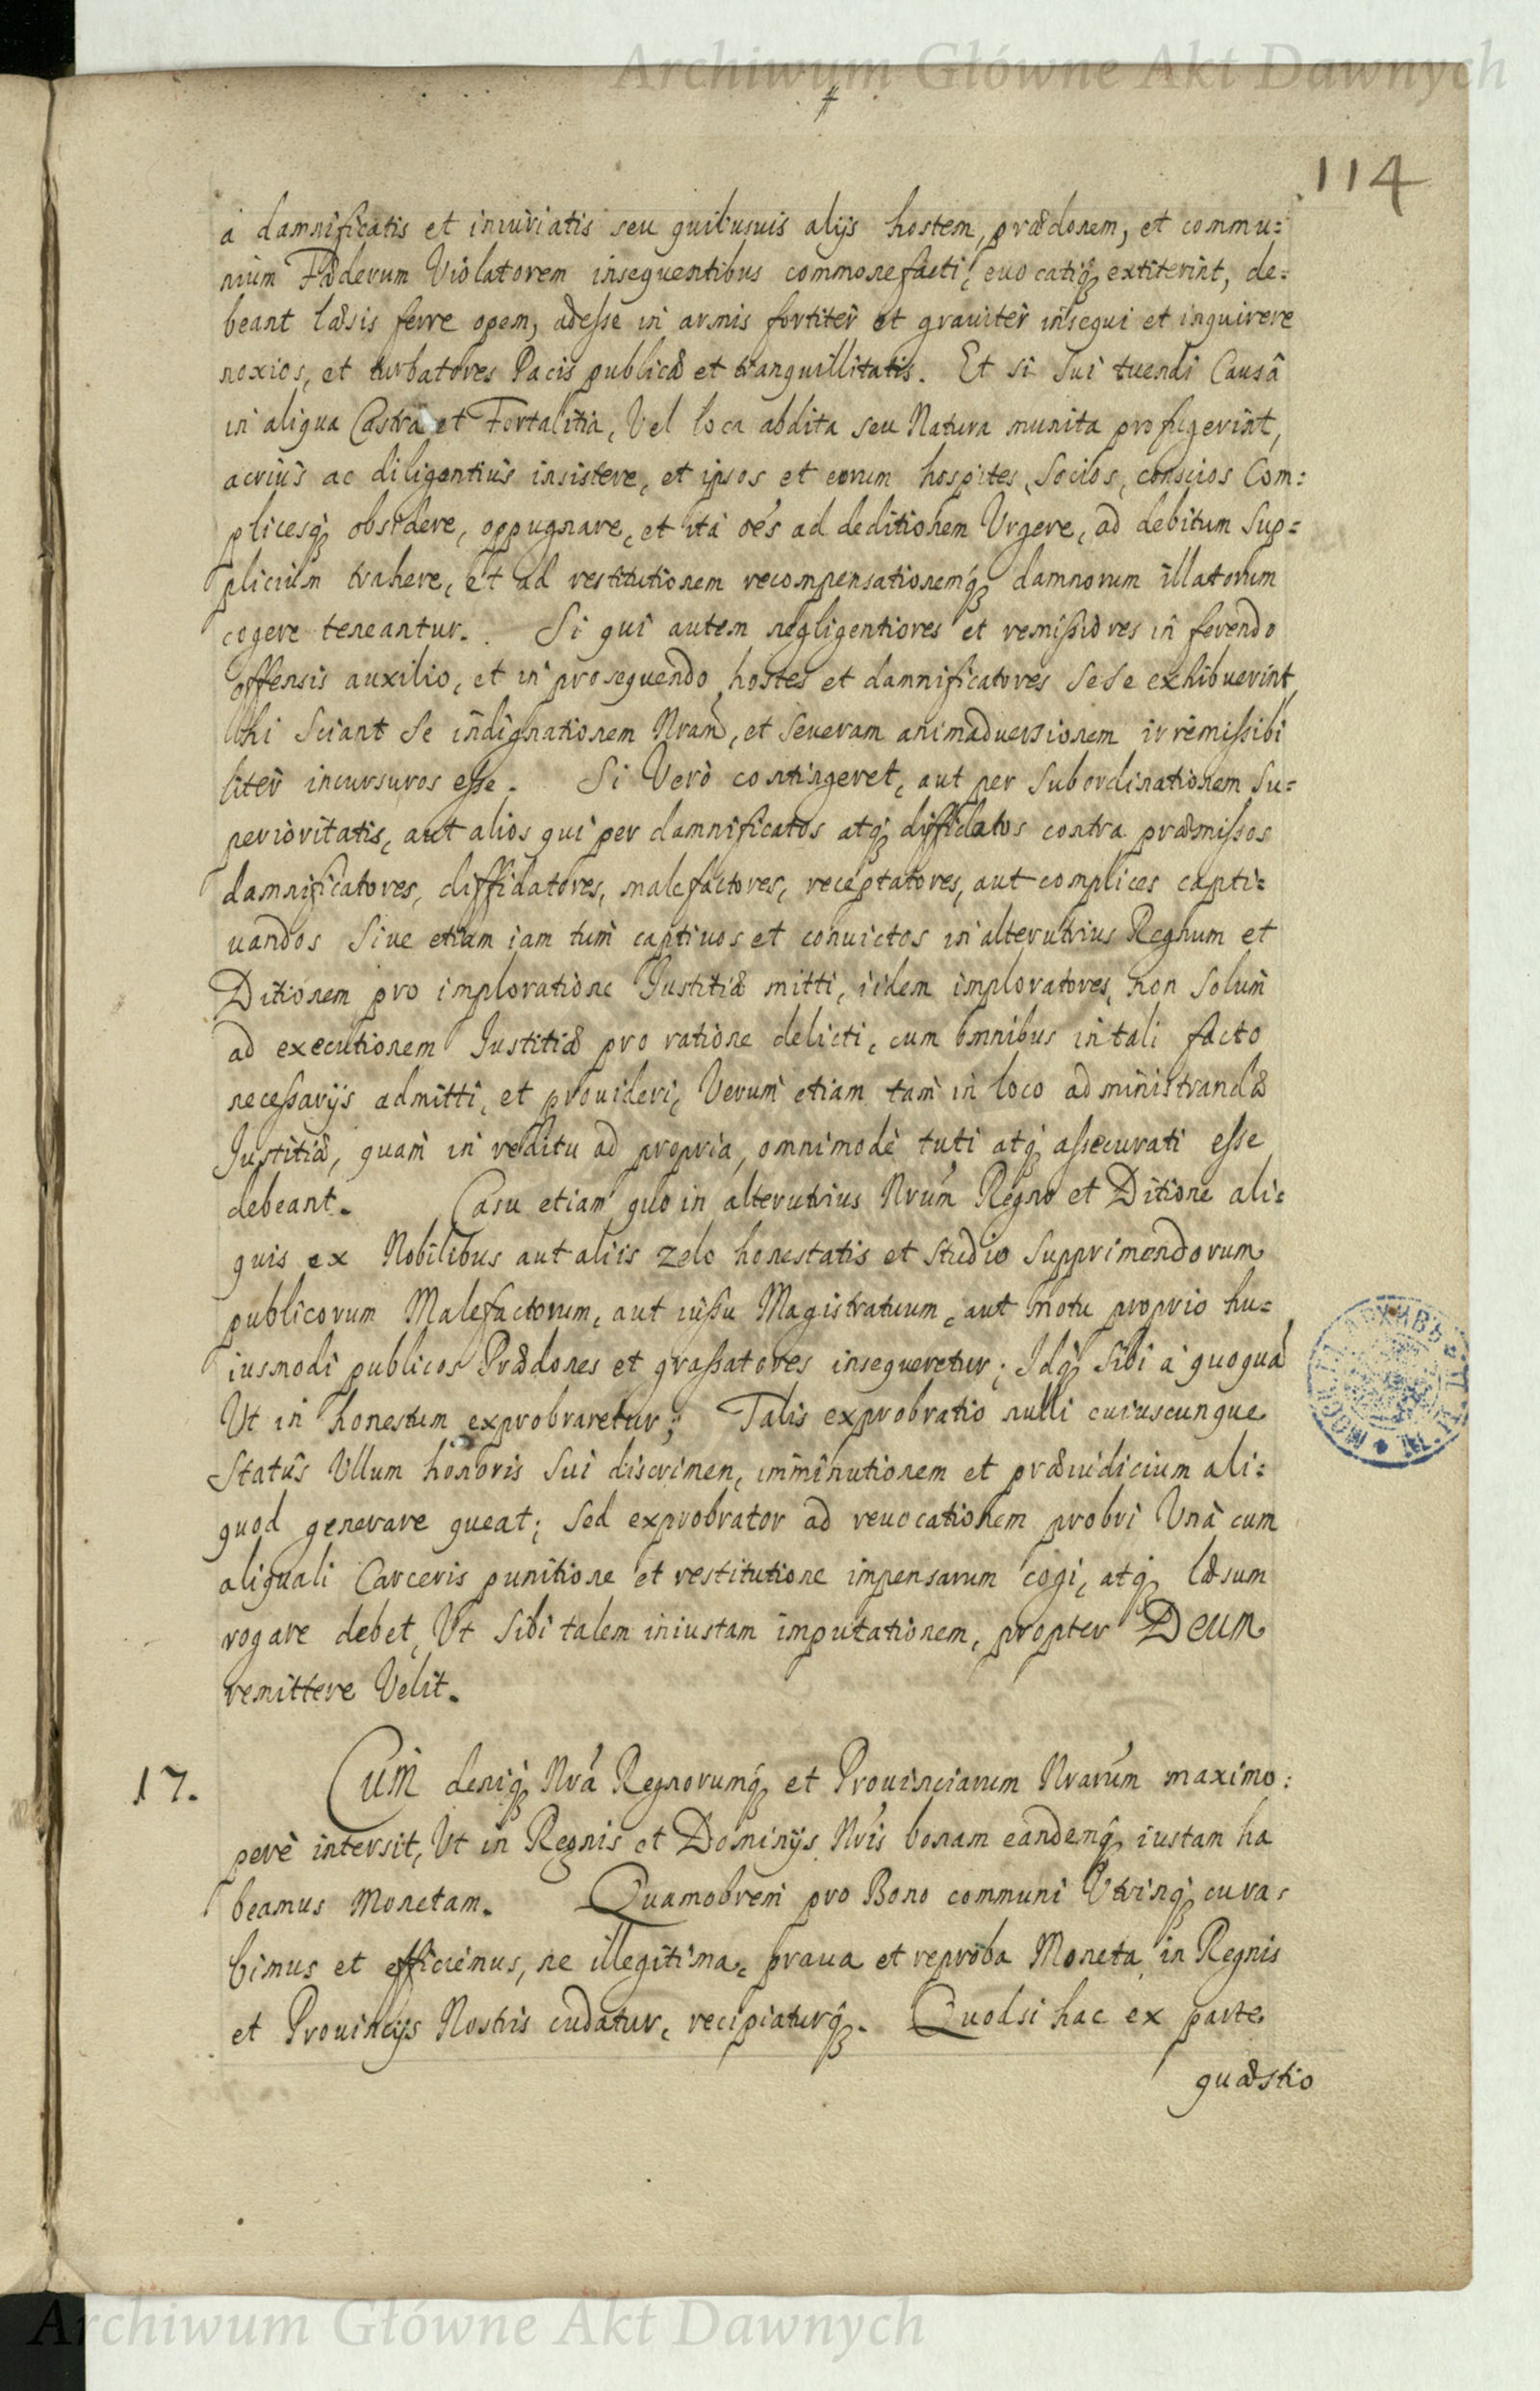 Archiwum Główne Akt Dawnych
114
a damnificatis et iniuriatis seu quibusuis alijs hostem, prædonem, et commu:
nium Fæderum Violatorem insequentibus commonefacti, euocatiq; extiterint, de:
beant læsis ferre opem, adesse in armis fortiter et grauiter insequi et inquirere
noxios, et turbatores Pacis publicæ et tranquillitatis. Et si Sui tuendi Causâ
in aliqua Castra et Fortalitia, Vel loca abdita seu Natura munita profugerint,
acriùs ac diligentiùs insistere, et ipsos et eorum hospites, Socios, conscios Com:
plicesq; obsidere, oppugnare, et ità oēs ad deditionem Urgere, ad debitum Sup=
plicium trahere, et ad restitutionem recompensationemq; damnorum illatorum
cogere teneantur. Si qui autem negligentiores et remissiores in ferendo
offensis auxilio, et in prosequendo hostes et damnificatores Sese exhibuerint,
hi Sciant Se indignationem Nram, et Seueram animaduersionem irremissibi
liter incursuros esse. Si Verò contingeret, aut per Subordinationem Su=
perioritatis, aut alios qui per damnificatos atq; diffidatos contra præmissos
damnificatores, diffidatores, malefactores, receptatores, aut complices capti=
uandos Siue etiam iam tum captiuos et conuictos in alterutrius Regnum et
Ditionem pro imploratione Justitiæ mitti, iidem imploratores, non Solum
ad executionem Justitiæ pro ratione delicti, cum omnibus in tali facto
necessarijs admitti, et prouideri, Verum etiam tam in loco administrandæ
Justitiæ, quam in reditu ad propria, omnimodè tuti atq; assecurati esse
debeant. Casu etiam quo in alterutrius Nrûm Regno et Ditione ali=
quis ex Nobilibus aut aliis zelo honestatis et studio Supprimendorum
publicorum Malefactorum, aut iussu Magistratuum, aut motu proprio hu=
iusmodi publicos Prædones et grassatores insequeretur; Idq; Sibi a quoquã
Ut in honestum exprobraretur; Talis exprobratio nulli cuiuscunque
Statûs Ullum honoris Sui discrimen, imminutionem et præiudicium ali=
quod generare queat; Sed exprobrator ad reuocationem probri Unà cum
aliquali Carceris punitione et restitutione impensarum cogi, atq; læsum
rogare debet, Ut Sibi talem iniustam imputationem, propter Deum
remittere Velit.
17. Cum deniq; Nrâ Regnorumq; et Prouinciarum Nrarum maximo:
perè intersit, Ut in Regnis et Dominijs Nris bonam eandemq; iustam ha
beamus Monetam. Quamobrem pro Bono communi Utrinq; cura=
bimus et efficiemus, ne illegitima, praua et reproba Moneta in Regnis
et Prouincijs Nostris cudatur, recipiaturq;. Quodsi hac ex parte
quæstio
Archiwum Główne Akt Dawnych